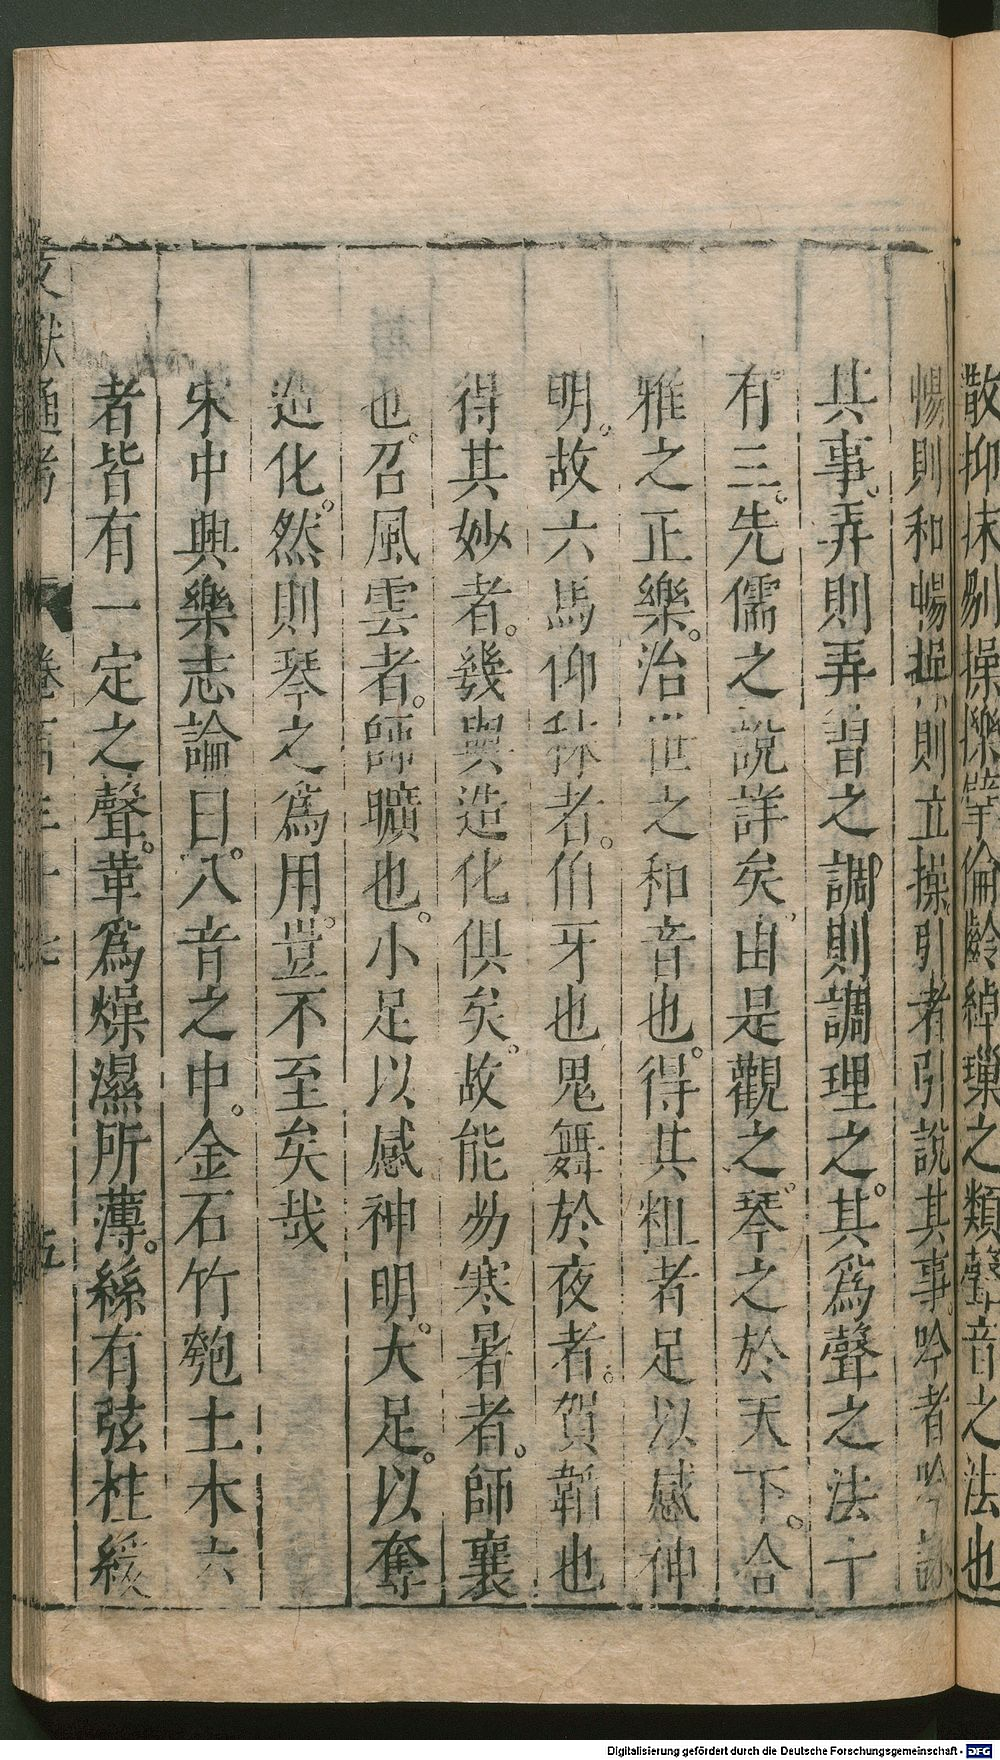 散抑抹剔操擽擘倫齪綽璅之類聲音之法也
暢則和暢操則立操引者引說其事吟者吟詠
其事弄則弄習之調則調理之其為聲之法十
有三先儒之說詳矣由是觀之琴之於天下合
雅之正樂治世之和音也得其粗者足以感神
明故六馬仰秣者伯牙也鬼舞於夜者賀韜也
得其妙者幾與造化俱矣故能易寒暑者師襄
也召風雲者師曠也小足以感神明大足以奪
造化然則琴之為用豈不至矣哉
宋中興樂志論曰八音之中金石竹匏土木六
者皆有一定之聲革為燥濕所薄絲有弦柱緩
文獻通考 卷百三十七 五
Digitalisierung gefördert durch die Deutsche Forschungsgemeinschaft - DFG